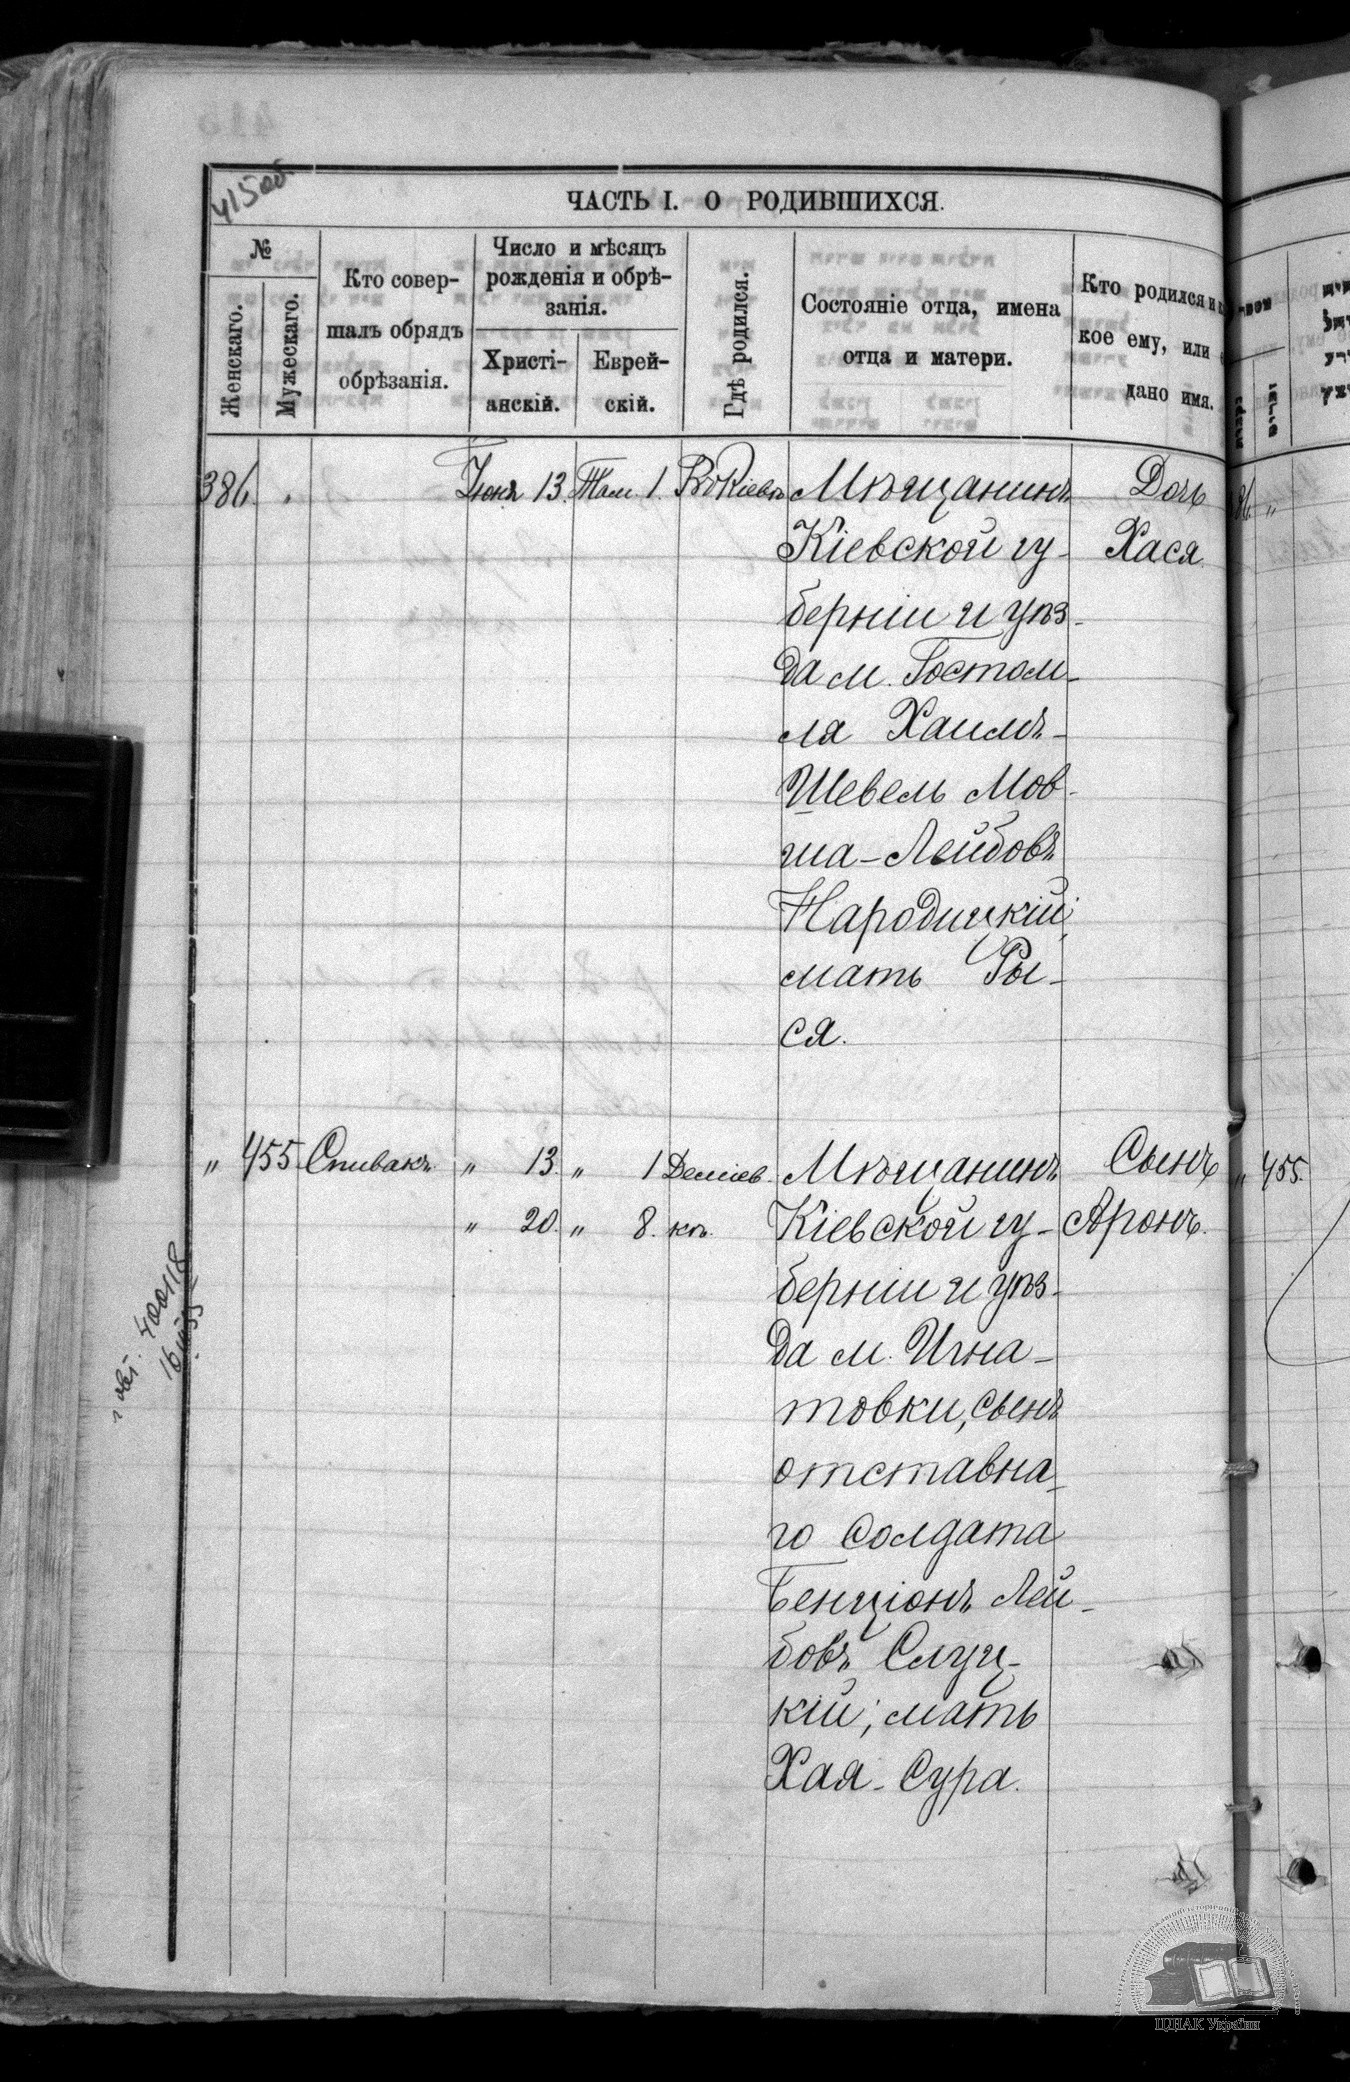 415об.
ЧАСТЬ I. О РОДИВШИХСЯ.
№
Женскаго.
Мужескаго.
Кто совер-
шалъ обрядъ
обрѣзанія.
Число и мѣсяцъ
рожденія и обрѣ-
занія.
Христі-
анскій.
Еврей-
скій.
Гдѣ родился.
Состояніе отца, имена
отца и матери.
Кто родился и
кое ему, или
дано имя.
386. „ Іюня 13. Там. 1. Въ Кіевѣ Мѣщанинъ Дочь
Кіевской гу- Хася.
берніи и уѣз-
да м. Гостом-
ля Хаимъ-
Шевель Мов-
ша-Лейбовъ
Народицкій;
мать Ры-
ся.
„ 455 Спивакъ „ 13. „ 1 Деміев- Мѣщанинъ Сынъ
„ 20. „ 8. кѣ. Кіевской гу- Аронъ.
берніи и уѣз-
да м. Игна-
товки, сынъ
отставна-
го солдата
Бенціонъ Лей-
бовъ Слуц-
кій; мать
Хая-Сура.
400118
86 „
„ 455.
ЦДІАК України